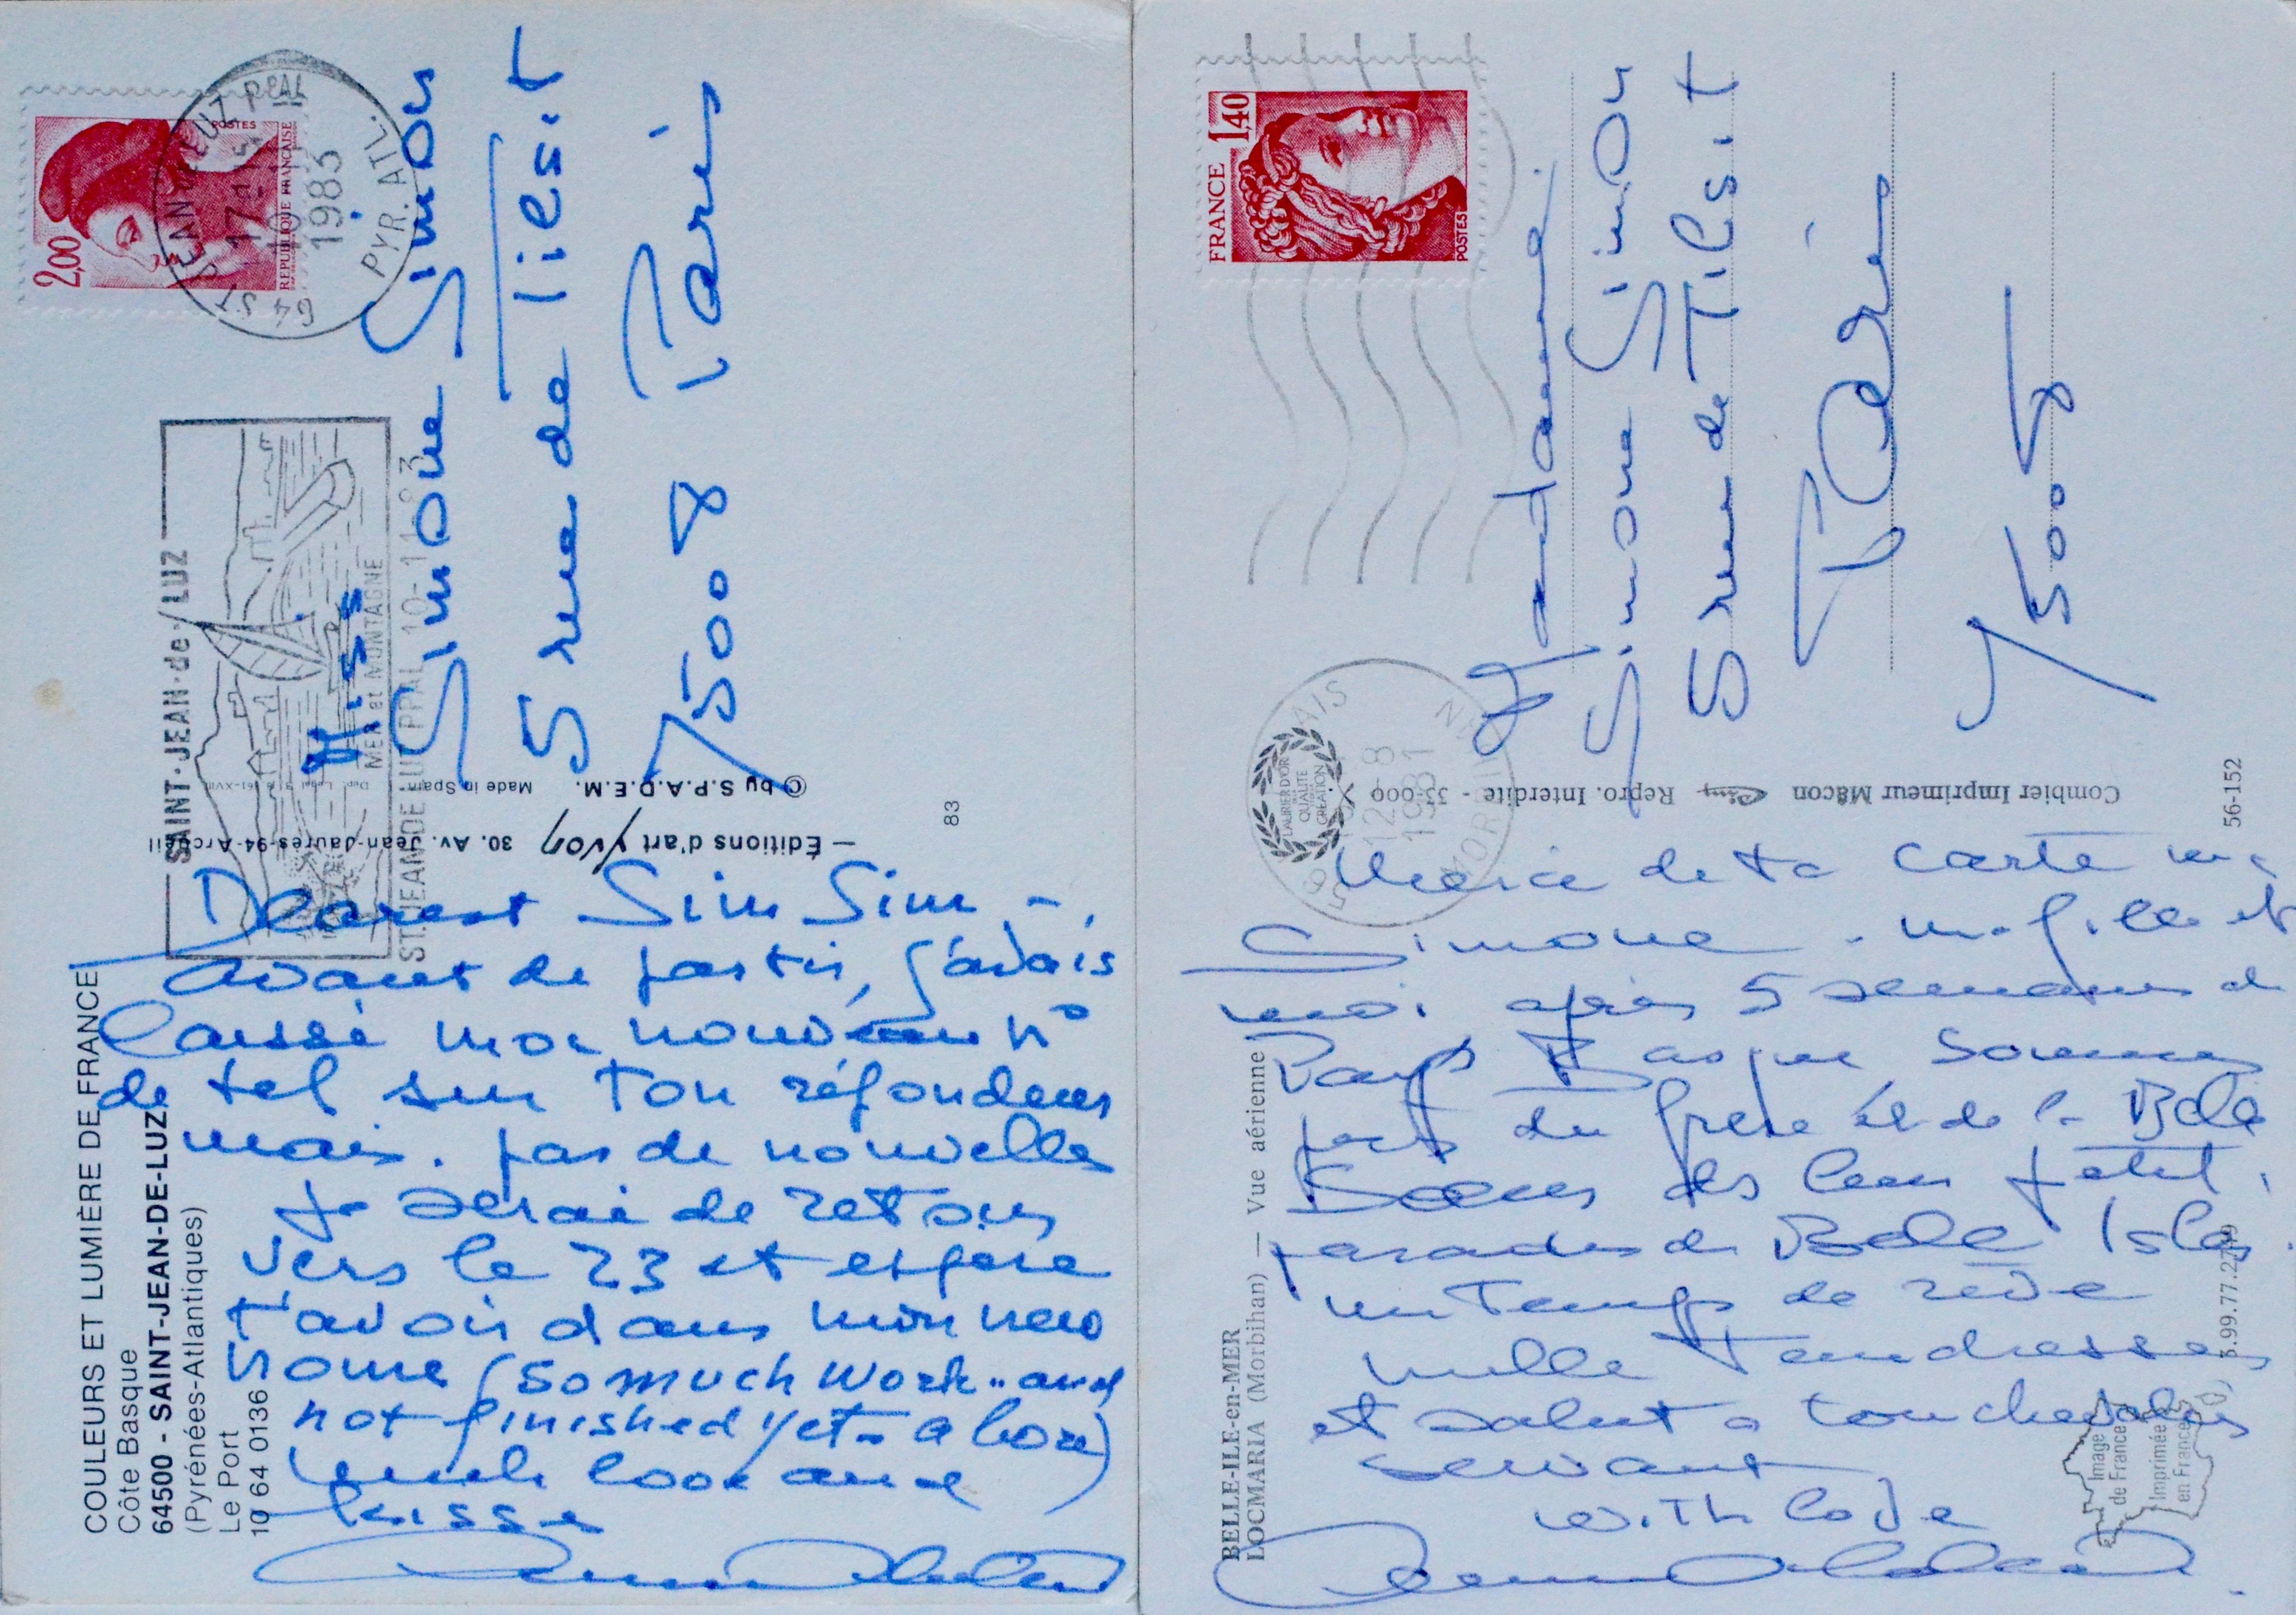 Miss
Simone Simon
5 rue de Tilsit
75008 Paris
2,00
POSTES
REPUBLIQUE FRANCAISE
64 ST JEAN DE LUZ PPAL
17H15
10-11
1983
PYR. ATL.
SAINT-JEAN-de-LUZ
MER et MONTAGNE
ST JEAN DE LUZ PPAL 10-11 83
© by S.P.A.D.E.M. Made in Spain
— Éditions d'art Yvon 30. Av. Jean-Jaurès-94-Arcueil
83
COULEURS ET LUMIÈRE DE FRANCE
Côte Basque
64500 - SAINT-JEAN-DE-LUZ
(Pyrénées-Atlantiques)
Le Port
10 64 0136
Dearest Sim Sim -
avant de partir, j'avais
laissé mon nouveau n°
de tel sur ton répondeur
mais. pas de nouvelles
je serai de retour
vers le 23 et espère
t'avoir dans mon new
home (so much work.. and
not finished yet - a bore)
much love and
kisses
FRANCE 1,40
POSTES
Madame
Simone Simon
5 rue de Tilsit
Paris
75008
12-8
1981
MORBIHAN
LAURIER D'OR
QUALITE
CREATION
Combier Imprimeur Mâcon Cim Repro. Interdite - 33.000 X.
56-152
BELLE-ILE-en-MER
LOCMARIA (Morbihan) — Vue aérienne
3.99.77.2
Image
de France
Imprimée
en France
Merci de ta carte ma
Simone - ma fille et
moi après 5 semaines de
Pays Basque sommes
près du frère et de la Belle
Soeur ds leur petit
paradis de Belle Isle.
un Temps de rêve
mille tendresses
et salut a ton chevalier
servant
with love